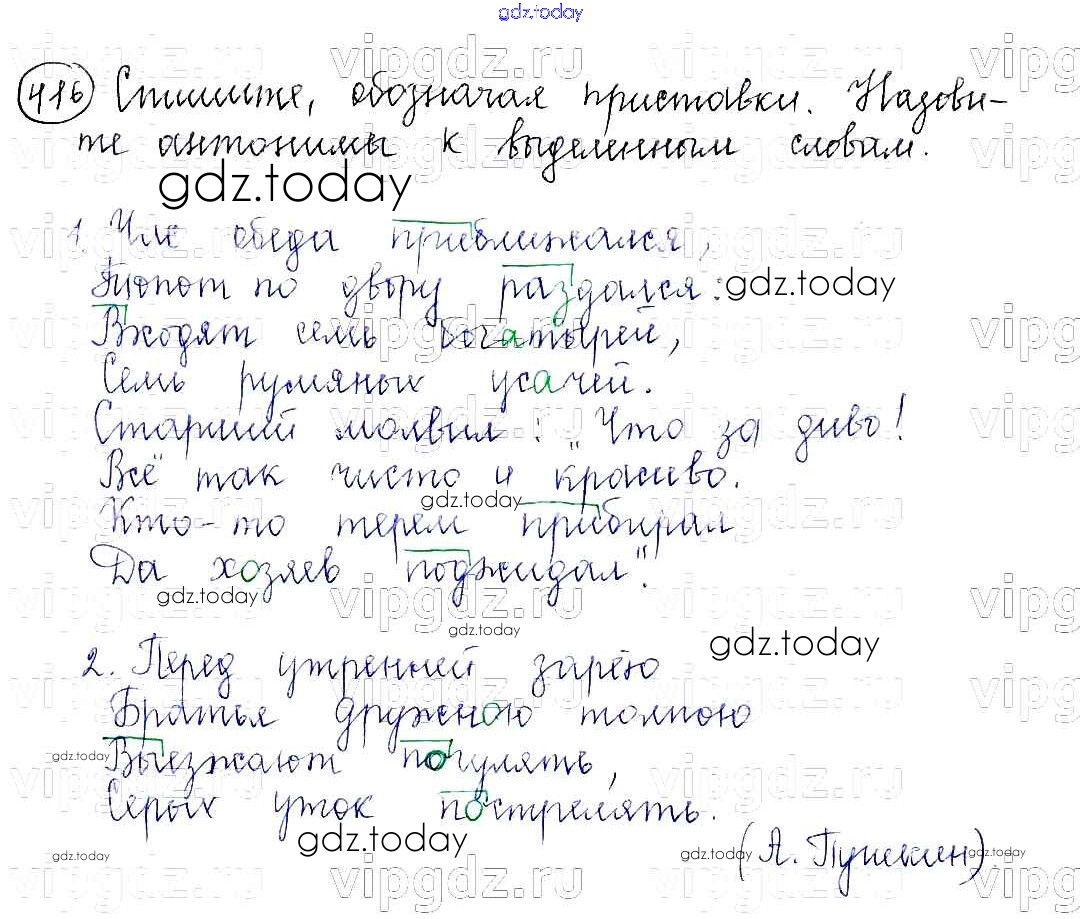 gdz.today
416 Спишите, обозначая приставки. Назови-
те антонимы к выделенным словам.
gdz.today
1. Час обеда приближался,
Топот по двору раздался:
gdz.today
Входят семь богатырей,
Семь румяных усачей.
Старший молвил: "Что за диво!
Всё так чисто и красиво.
gdz.today
Кто-то терем прибирал
Да хозяев поджидал".
gdz.today
gdz.today
gdz.today
2. Перед утренней зарёю
Братья дружною толпою
gdz.today
Выезжают погулять,
Серых уток пострелять.
gdz.today
(А. Пушкин).
gdz.today
gdz.today
vipgdz.ru